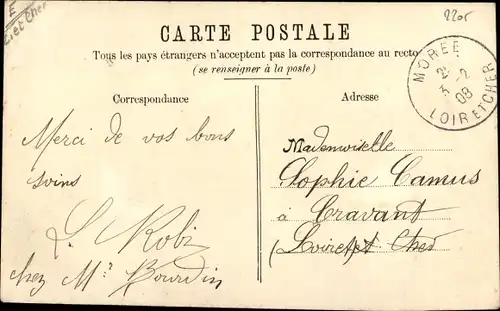 E
Loir et Cher
2205
CARTE POSTALE
Tous les pays étrangers n'acceptent pas la correspondance au recto
(se renseigner à la poste)
MORÉE
3-2
08
LOIR ET CHER
Correspondance
Adresse
Merci de vos bons
soins
S. Robi
chez Mr Bourdin
Mademoiselle
Sophie Camus
à Cravant
(Loir et Cher